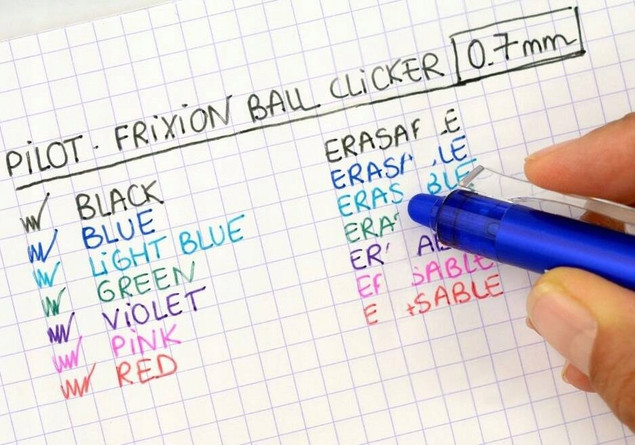 PILOT. FRIXION BALL CLICKER 0.7mm
BLACK
BLUE
LIGHT BLUE
GREEN
VIOLET
PINK
RED
ERASA E
ERAS LE
ERAS BLE
ERA
ER A
E SABLE
E SABLE